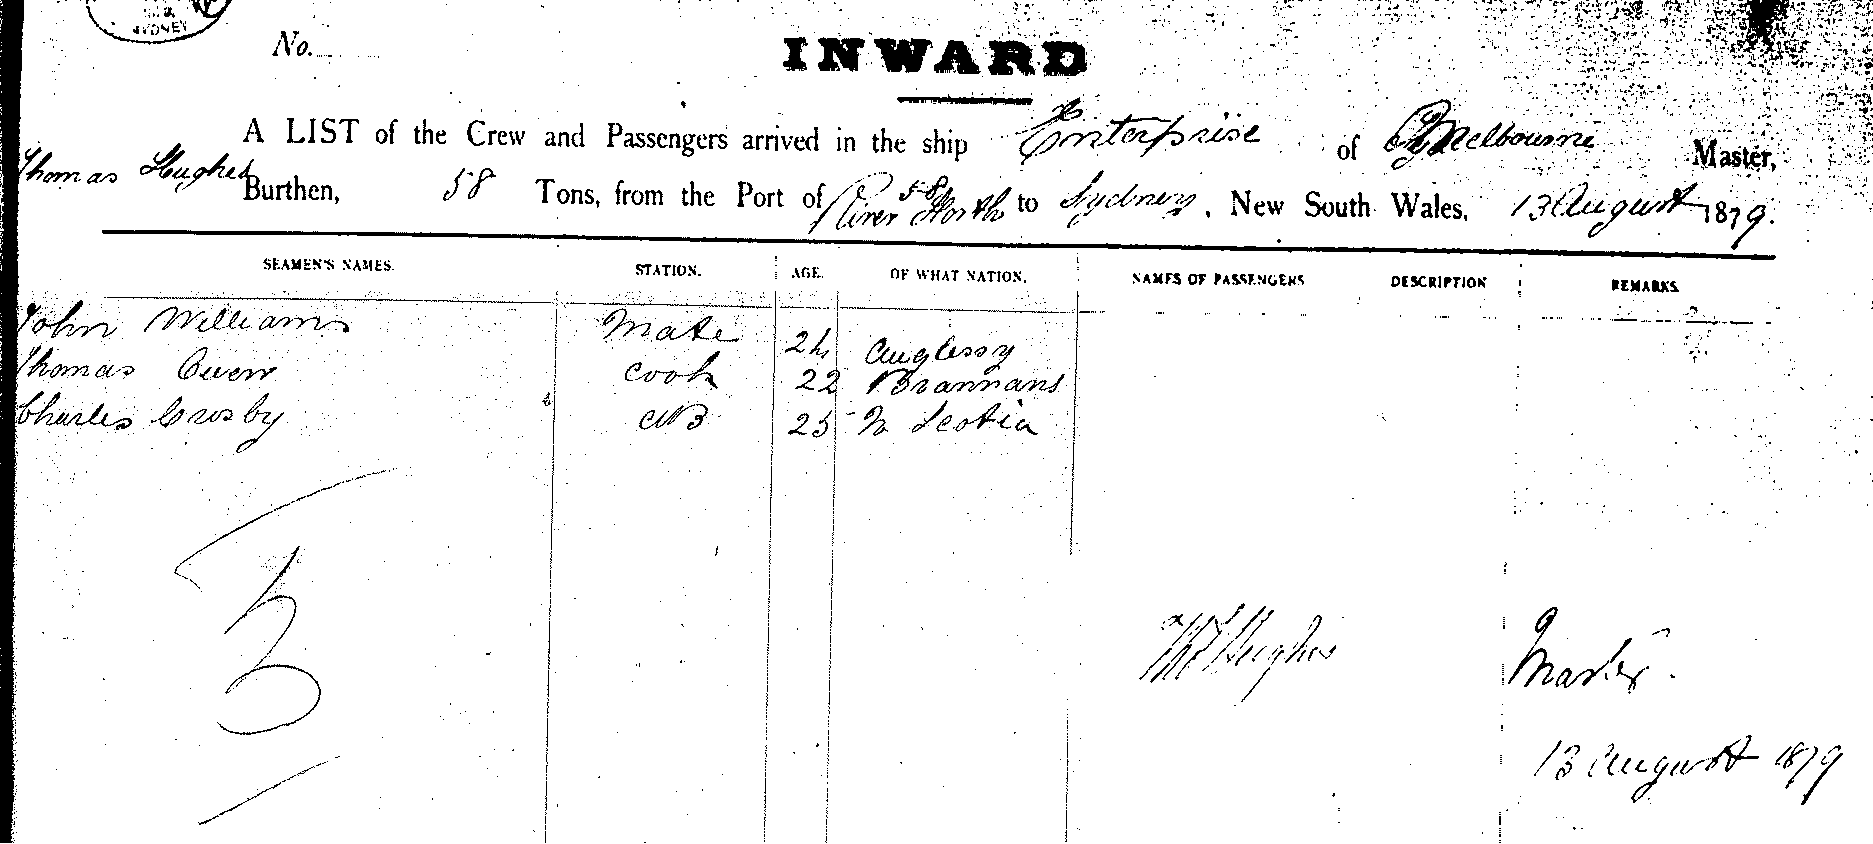 SYDNEY
No.
INWARD
A LIST of the Crew and Passengers arrived in the ship Enterprise of Melbourne Master,
Thomas Hughes Burthen, 58 Tons, from the Port of River North to Sydney, New South Wales, 13 August 1879.
SEAMEN'S NAMES. STATION. AGE. OF WHAT NATION. NAMES OF PASSENGERS DESCRIPTION REMARKS.
John Williams Mate 24 Anglessy
Thomas Owen Cook 22
Charles Crosby AB 25 N Scotia
3
Thos Hughes Master.
13 August 1879